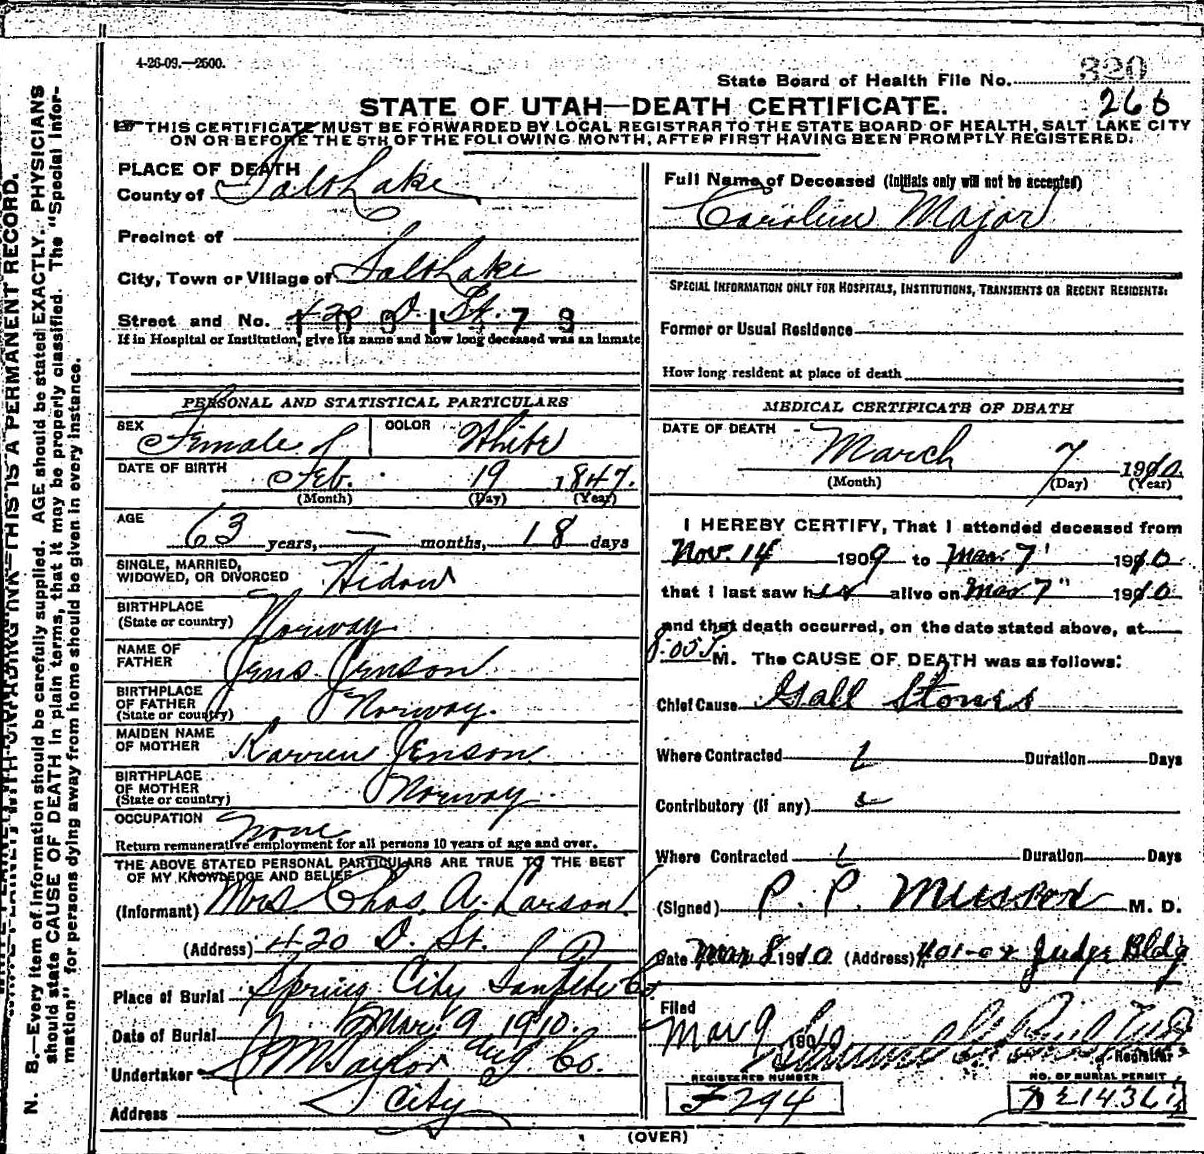 4-26-09.—2500.
State Board of Health File No. 320
266
STATE OF UTAH—DEATH CERTIFICATE.
THIS CERTIFICATE MUST BE FORWARDED BY LOCAL REGISTRAR TO THE STATE BOARD OF HEALTH, SALT LAKE CITY
ON OR BEFORE THE 5TH OF THE FOLLOWING MONTH, AFTER FIRST HAVING BEEN PROMPTLY REGISTERED.
PLACE OF DEATH
County of Salt Lake
Precinct of
City, Town or Village of Salt Lake
Street and No. 420 D. St.
If in Hospital or Institution, give its name and how long deceased was an inmate
PERSONAL AND STATISTICAL PARTICULARS
SEX Female COLOR White
DATE OF BIRTH Feb. 19 1847.
(Month) (Day) (Year)
AGE 63 years, — months, 18 days
SINGLE, MARRIED,
WIDOWED, OR DIVORCED Widow
BIRTHPLACE
(State or country) Norway
NAME OF
FATHER Jens Jenson
BIRTHPLACE
OF FATHER
(State or country) Norway.
MAIDEN NAME
OF MOTHER Karren Jenson
BIRTHPLACE
OF MOTHER
(State or country) Norway
OCCUPATION None
Return remunerative employment for all persons 10 years of age and over.
THE ABOVE STATED PERSONAL PARTICULARS ARE TRUE TO THE BEST
OF MY KNOWLEDGE AND BELIEF
(Informant) Mrs. Chas. A. Larson
(Address) 420 D. St.
Place of Burial Spring City Sanpete Co.
Date of Burial Mar. 9 1910.
Undertaker S M Taylor Co.
Address City
Full Name of Deceased (Initials only will not be accepted)
Carolin Major
SPECIAL INFORMATION ONLY FOR HOSPITALS, INSTITUTIONS, TRANSIENTS OR RECENT RESIDENTS:
Former or Usual Residence
How long resident at place of death
MEDICAL CERTIFICATE OF DEATH
DATE OF DEATH March 7 1910.
(Month) (Day) (Year)
I HEREBY CERTIFY, That I attended deceased from
Nov. 14 1909 to Mar. 7 1910
that I last saw her alive on Mar 7" 1910
and that death occurred, on the date stated above, at
8.00 M. The CAUSE OF DEATH was as follows:
Chief Cause Gall Stones
Where Contracted Duration Days
Contributory (if any)
Where Contracted Duration Days
(Signed) P. P. Musser M. D.
Date Mar 8 1910 (Address) 401-02 Judge Bldg
Filed
Mar 9 1910
Registrar
REGISTERED NUMBER NO. OF BURIAL PERMIT
F 294
(OVER)
N. B.—Every item of information should be carefully supplied. AGE should be stated EXACTLY. PHYSICIANS
should state CAUSE OF DEATH in plain terms, that it may be properly classified. The "Special Infor-
mation" for persons dying away from home should be given in every instance.
THIS IS A PERMANENT RECORD.